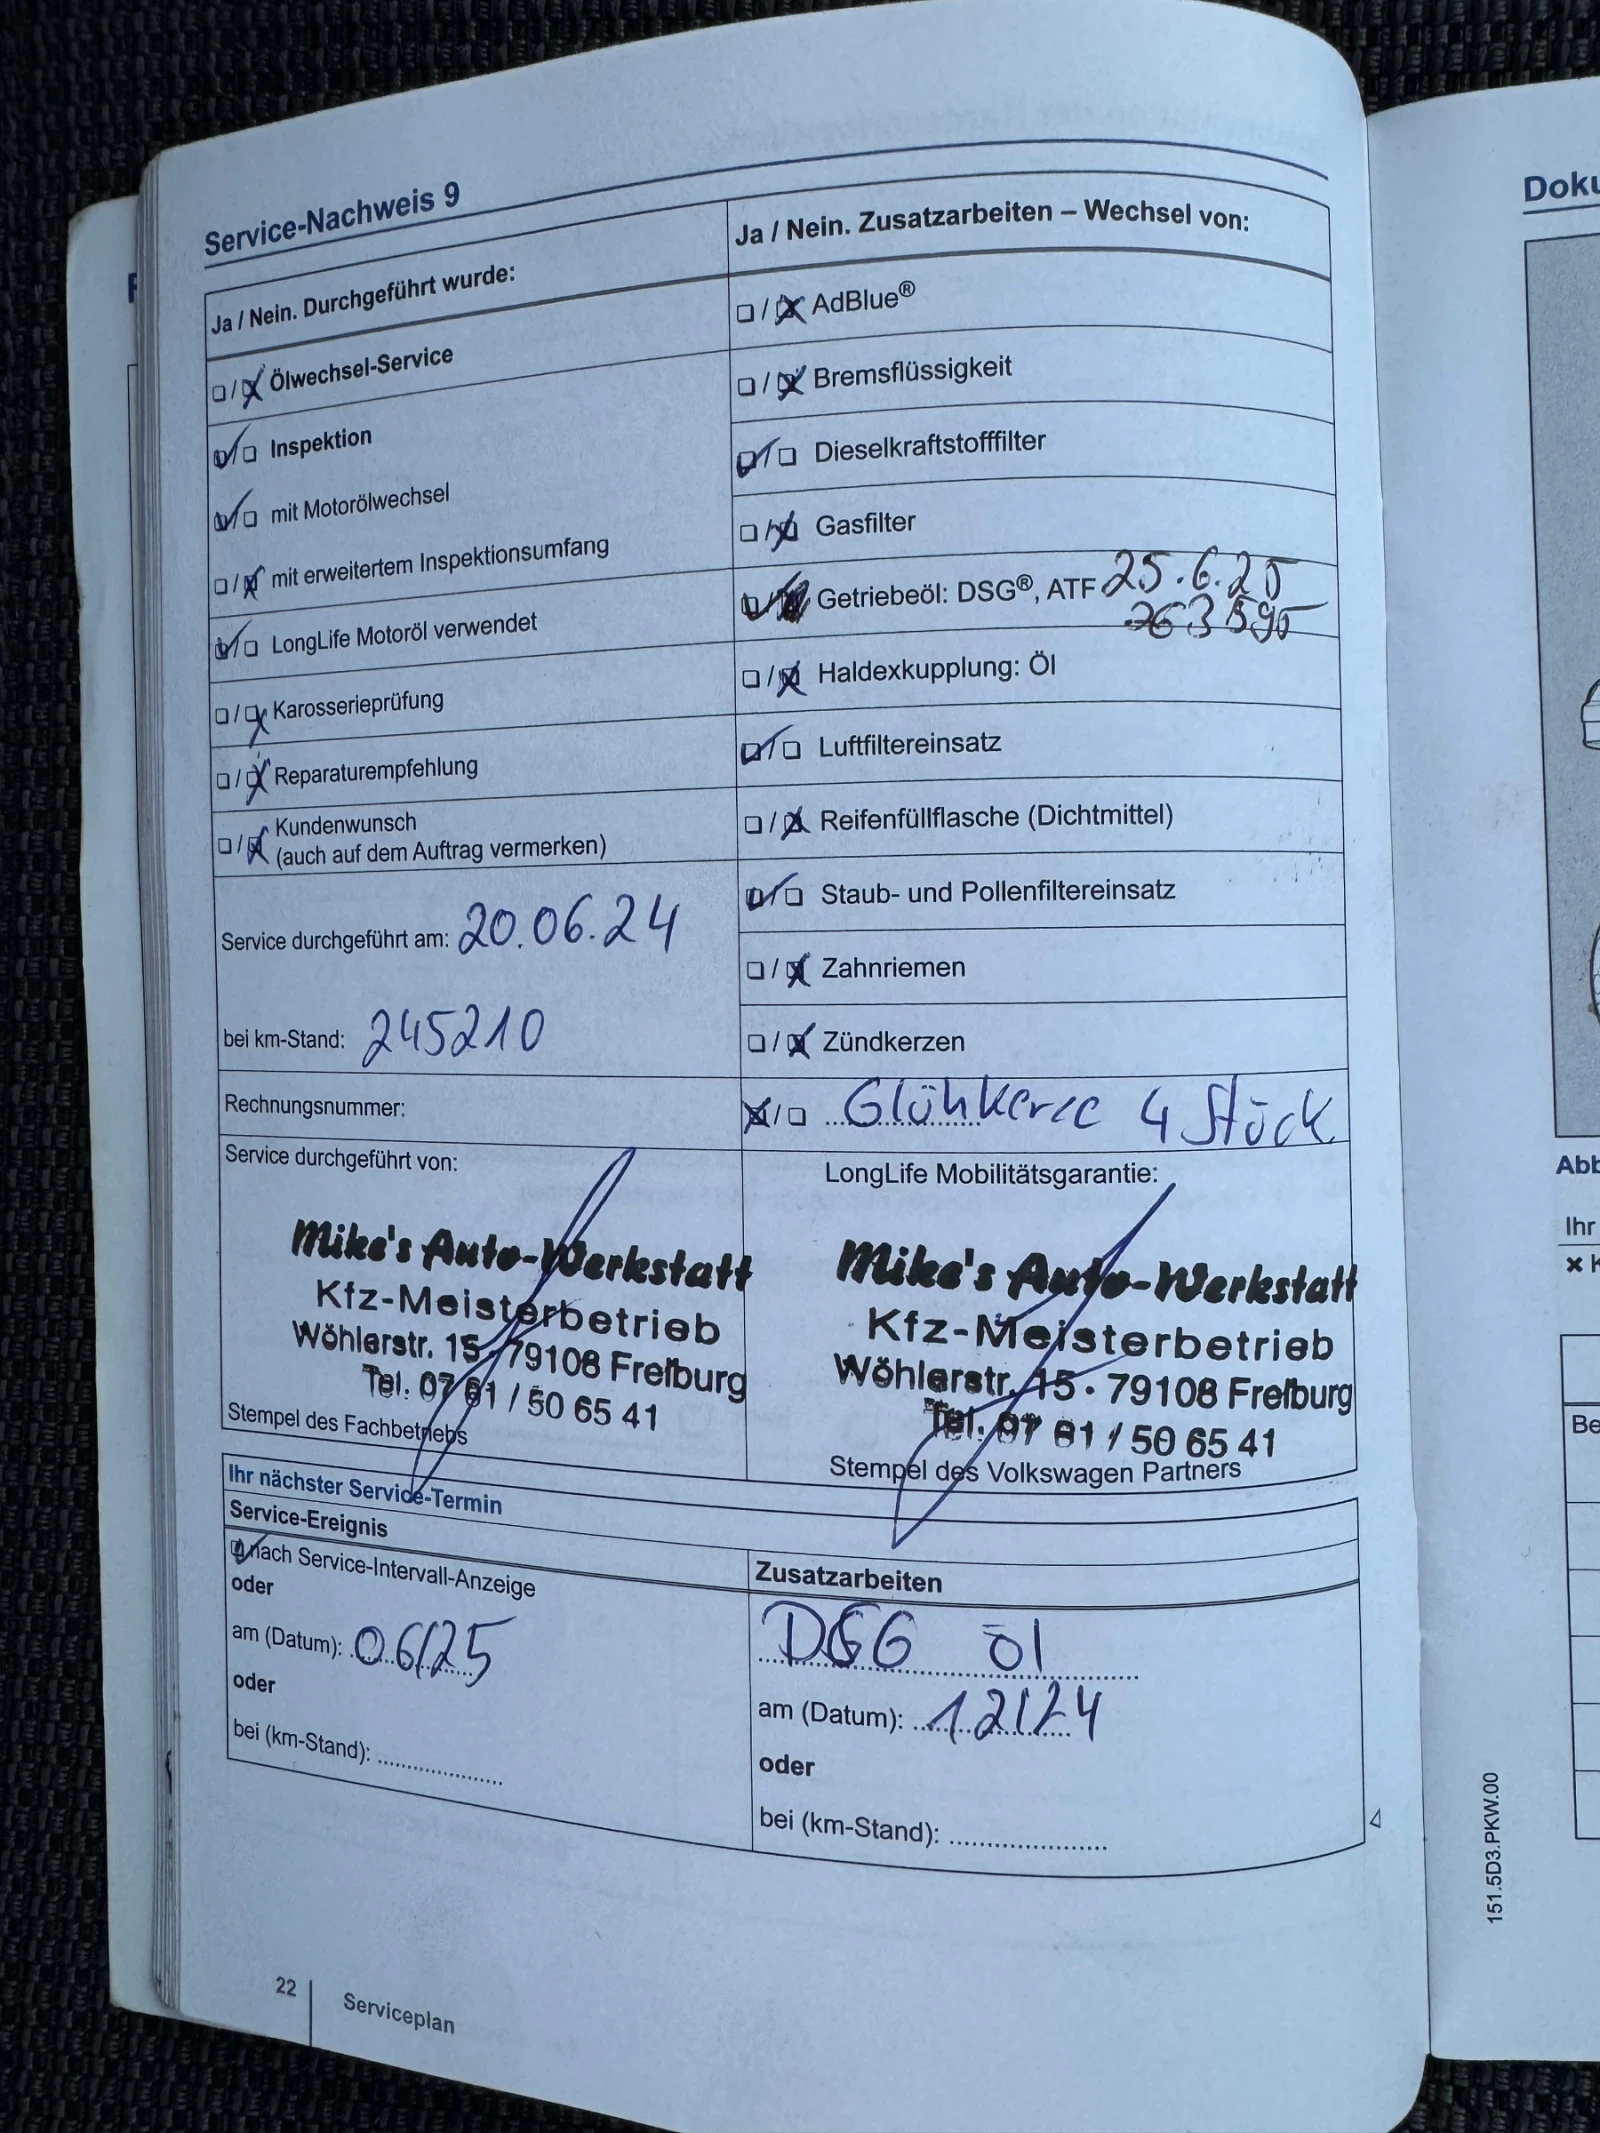 Service-Nachweis 9
Ja / Nein. Durchgeführt wurde:
❏ / ❏ Ölwechsel-Service
❏ / ❏ Inspektion
❏ / ❏ mit Motorölwechsel
❏ / ❏ mit erweitertem Inspektionsumfang
❏ / ❏ LongLife Motoröl verwendet
❏ / ❏ Karosserieprüfung
❏ / ❏ Reparaturempfehlung
❏ / ❏ Kundenwunsch
(auch auf dem Auftrag vermerken)
Service durchgeführt am: 20.06.24
bei km-Stand: 245210
Rechnungsnummer:
Service durchgeführt von:
Mike's Auto-Werkstatt
Kfz-Meisterbetrieb
Wöhlerstr. 15 · 79108 Freiburg
Tel. 07 61 / 50 65 41
Stempel des Fachbetriebs
Ja / Nein. Zusatzarbeiten – Wechsel von:
❏ / ❏ AdBlue®
❏ / ❏ Bremsflüssigkeit
❏ / ❏ Dieselkraftstofffilter
❏ / ❏ Gasfilter
❏ / ❏ Getriebeöl: DSG®, ATF 25.6.25
263595
❏ / ❏ Haldexkupplung: Öl
❏ / ❏ Luftfiltereinsatz
❏ / ❏ Reifenfüllflasche (Dichtmittel)
❏ / ❏ Staub- und Pollenfiltereinsatz
❏ / ❏ Zahnriemen
❏ / ❏ Zündkerzen
❏ / ❏ Glühkerze 4 Stück
LongLife Mobilitätsgarantie:
Mike's Auto-Werkstatt
Kfz-Meisterbetrieb
Wöhlerstr. 15 · 79108 Freiburg
Tel. 07 61 / 50 65 41
Stempel des Volkswagen Partners
Ihr nächster Service-Termin
Service-Ereignis
❏ nach Service-Intervall-Anzeige
oder
am (Datum): 06/25
oder
bei (km-Stand): ....................
Zusatzarbeiten
DSG Öl
am (Datum): 12/24
oder
bei (km-Stand): ....................
22
Serviceplan
Doku
Abb
Ihr
× K
Be
151.5D3.PKW.00